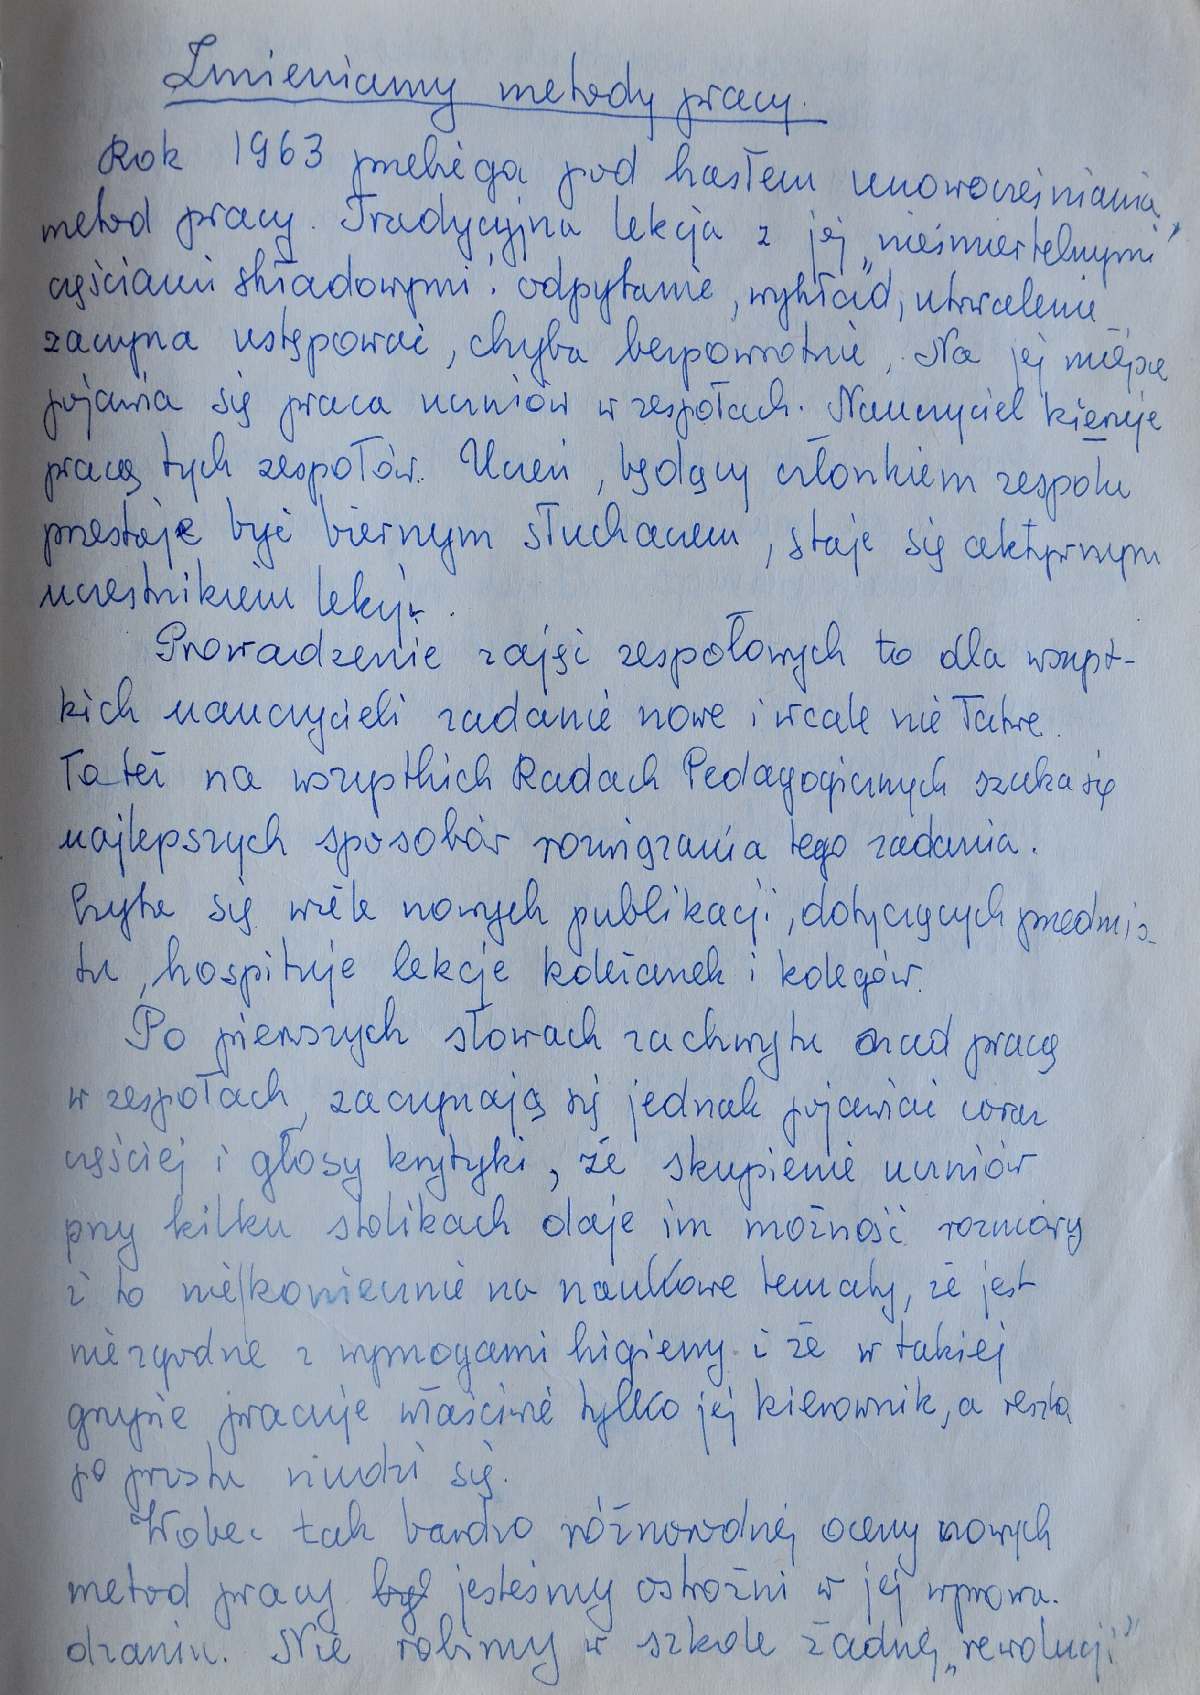 Zmieniamy metody pracy.
Rok 1963 przebiega pod hasłem unowocześniania
metod pracy. Tradycyjna lekcja z jej „nieśmiertelnymi”
częściami składowymi: odpytanie, wykład, utrwalenie
zaczyna ustępować, chyba bezpowrotnie. Na jej miejsce
pojawia się praca uczniów w zespołach. Nauczyciel kieruje
pracą tych zespołów. Uczeń, będący członkiem zespołu
przestaje być biernym słuchaczem, staje się aktywnym
uczestnikiem lekcji.
Prowadzenie zajęć zespołowych to dla wszyst-
kich nauczycieli zadanie nowe i wcale nie łatwe.
To też na wszystkich Radach Pedagogicznych szuka się
najlepszych sposobów rozwiązania tego zadania.
Czyta się wiele nowych publikacji, dotyczących przedmio-
tu, hospituje lekcje koleżanek i kolegów.
Po pierwszych słowach zachwytu nad pracą
w zespołach, zaczynają się jednak pojawiać coraz
częściej i głosy krytyki, że skupienie uczniów
przy kilku stolikach daje im możność rozmowy
i to niekoniecznie na naukowe tematy, że jest
niezgodne z wymogami higieny i że w takiej
grupie pracuje właściwie tylko jej kierownik, a reszta
po prostu nudzi się.
Wobec tak bardzo różnorodnej oceny nowych
metod pracy był jesteśmy ostrożni w jej wprowa-
dzaniu. Nie robimy w szkole żadnej „rewolucji”